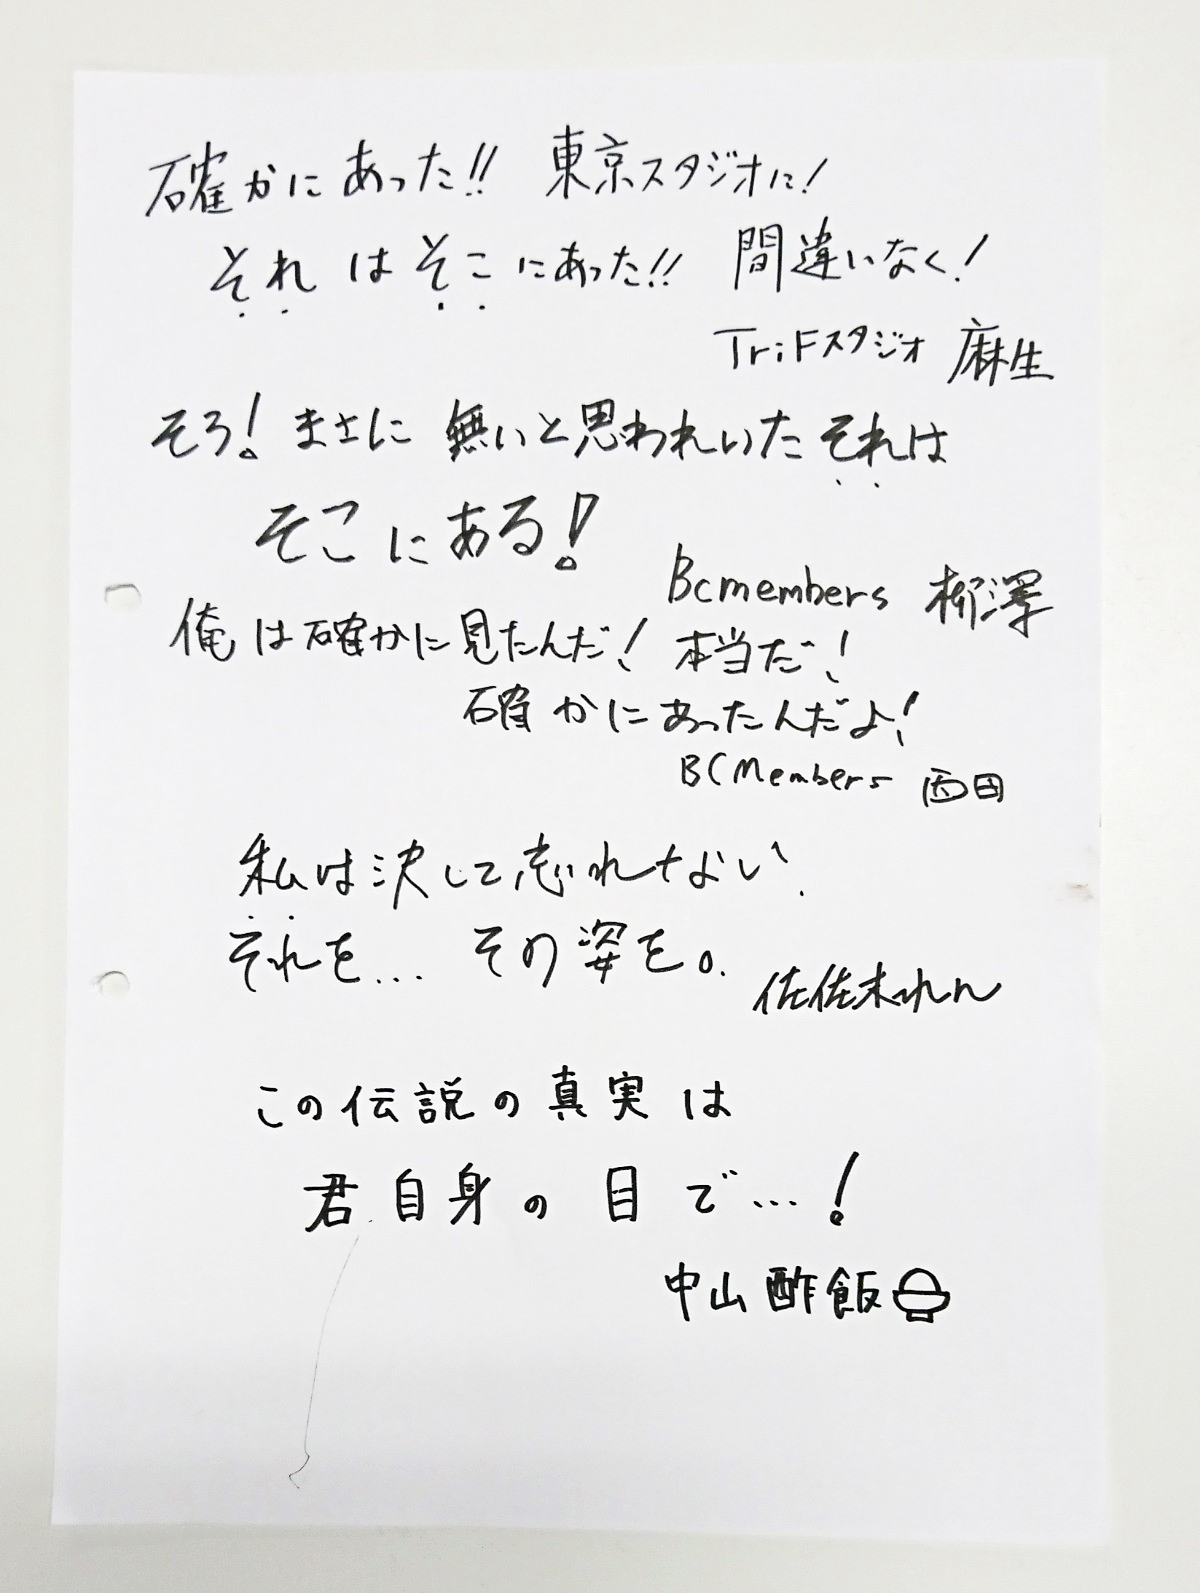 確かにあった!! 東京スタジオに!
それはそこにあった!! 間違いなく!
TriFスタジオ 麻生
そろ! まさに 無いと思われいたそれは
そこにある!
Bcmembers 柳澤
俺は確かに見たんだ! 本当だ!
確かにあったんだよ!
BCMembers 西田
私は決して忘れない、
それを… その姿を。
佐佐木れん
この伝説の真実は
君自身の目で…!
中山酢飯